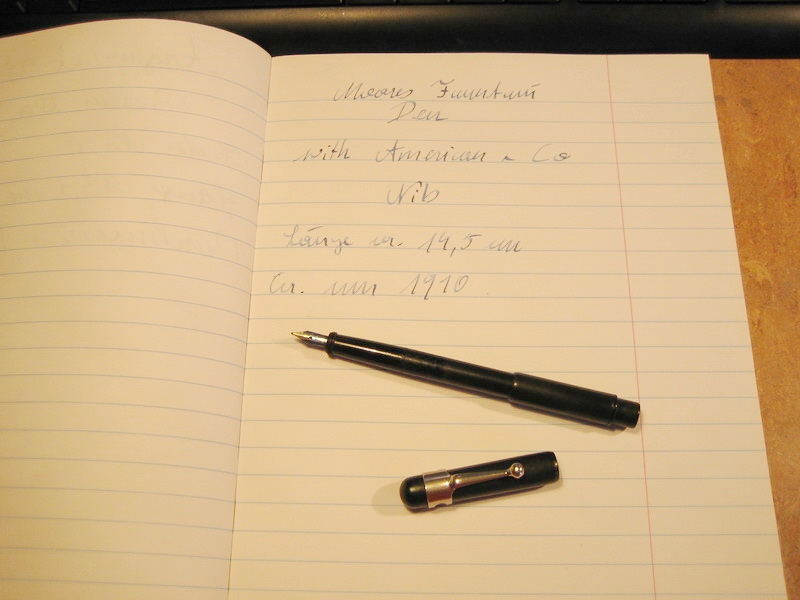 Moores Fountain
Pen
with American Co
Nib
Länge ca. 14,5 cm
Ca. um 1910